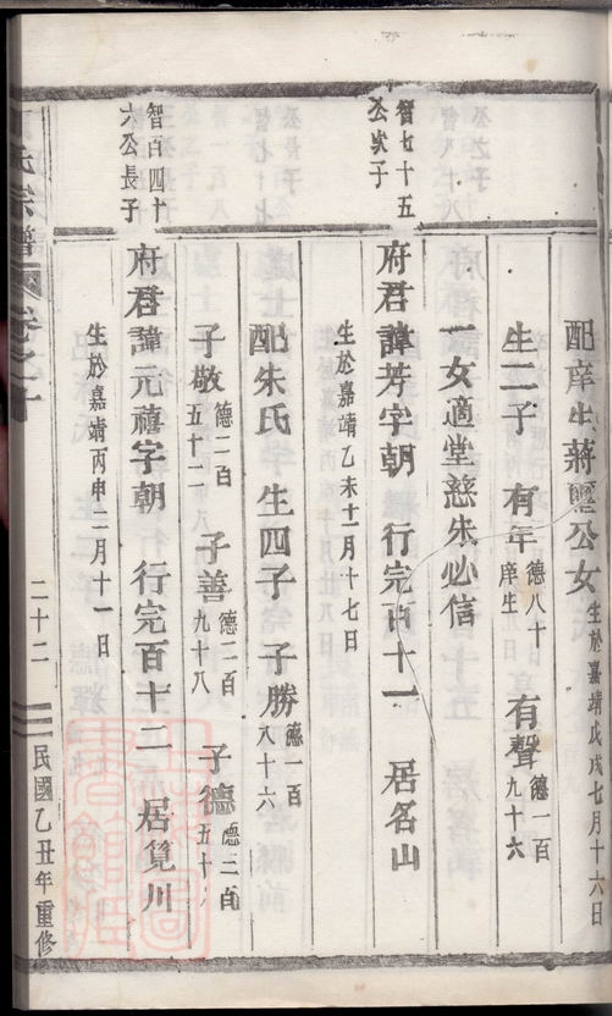 配庠生蔣㻞公女生於嘉靖戊戌七月十六日
生二子 有年德八十庠生 有聲德一百九十六
一女適堂慈朱必信
智七十五公次子
府君諱芳字朝 行完百十一 居名山
生於嘉靖乙未十一月十七日
配朱氏 生四子 子勝德一百八十六
子敬德二百五十二 子善德二百九十八 子德德二百五十
智百四十六公長子
府君諱元禧字朝 行完百十二 居筧川
生於嘉靖丙申二月十一日
氏宗譜 卷之十 二十二 民國乙丑年重修